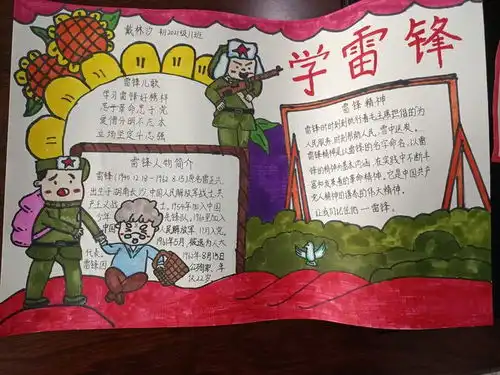 戴林汐 初2021级11班
学雷锋
雷锋儿歌
学习雷锋好榜样
忠于革命忠于党
爱憎分明不忘本
立场坚定斗志强
雷锋人物简介
雷锋(1940.12.18-1962.8.15)原名雷正兴
出生于湖南长沙,中国人民解放军战士,共
产主义战
士,1954年加入中国
少年
先锋队,1960年入
中国
人民解放军,11月入党,
1961年5月,
被选为人大
代表,
1962年8月15日
雷锋因
公殉职,年
仅22岁
雷锋精神
雷锋时时刻刻执行着毛主席把他的为
人民服务,时刻帮助人民,雪中送炭。
雷锋精神是以雷锋的名字命名,以雷
锋的精神为基本内涵,在实践中不断丰
富和发展着的革命精神,它是中国共产
党人精神的谱系的伟大精神,
让我们记住他—雷锋。